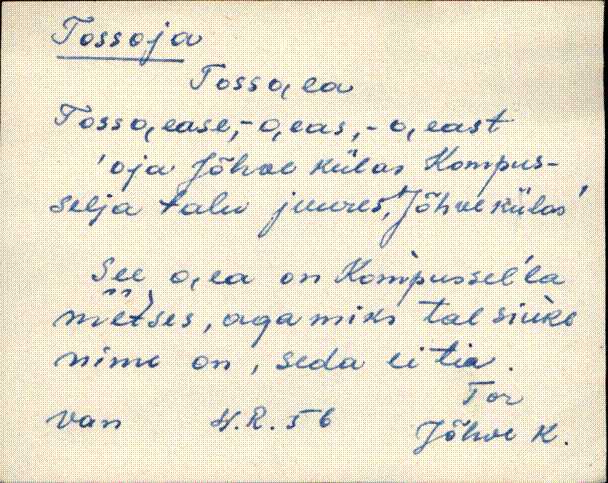 Tossoja
Tosso,ea
Tosso,ease,-o,eas,-o,east
'oja Jõhve külas Kompus-
selja talu juures, 'Jõhve külas'
See o,ea on Kompussel'la
mëtses, aga miks tal siuke
nime on, seda ei tia.
Tor
van H.R. 56
Jõhve K.